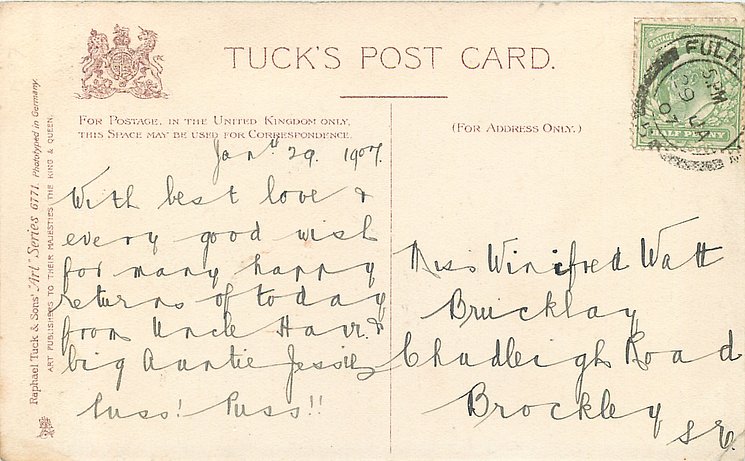 TUCK'S POST CARD.
FOR POSTAGE, IN THE UNITED KINGDOM ONLY,
THIS SPACE MAY BE USED FOR CORRESPONDENCE.
(FOR ADDRESS ONLY.)
Jany 29. 1907.
With best love &
every good wish
for many happy
returns of today
from Uncle Harr. &
big Auntie Jessie
Puss! Puss!!
Miss Winifred Watt
Brucklay
Chudleigh Road
Brockley
S.E.
Raphael Tuck & Sons' "Art" Series 6771. Phototyped in Germany.
ART PUBLISHERS TO THEIR MAJESTIES THE KING & QUEEN.
POSTAGE
HALF PENNY
FULH
5 PM
29 JA
07